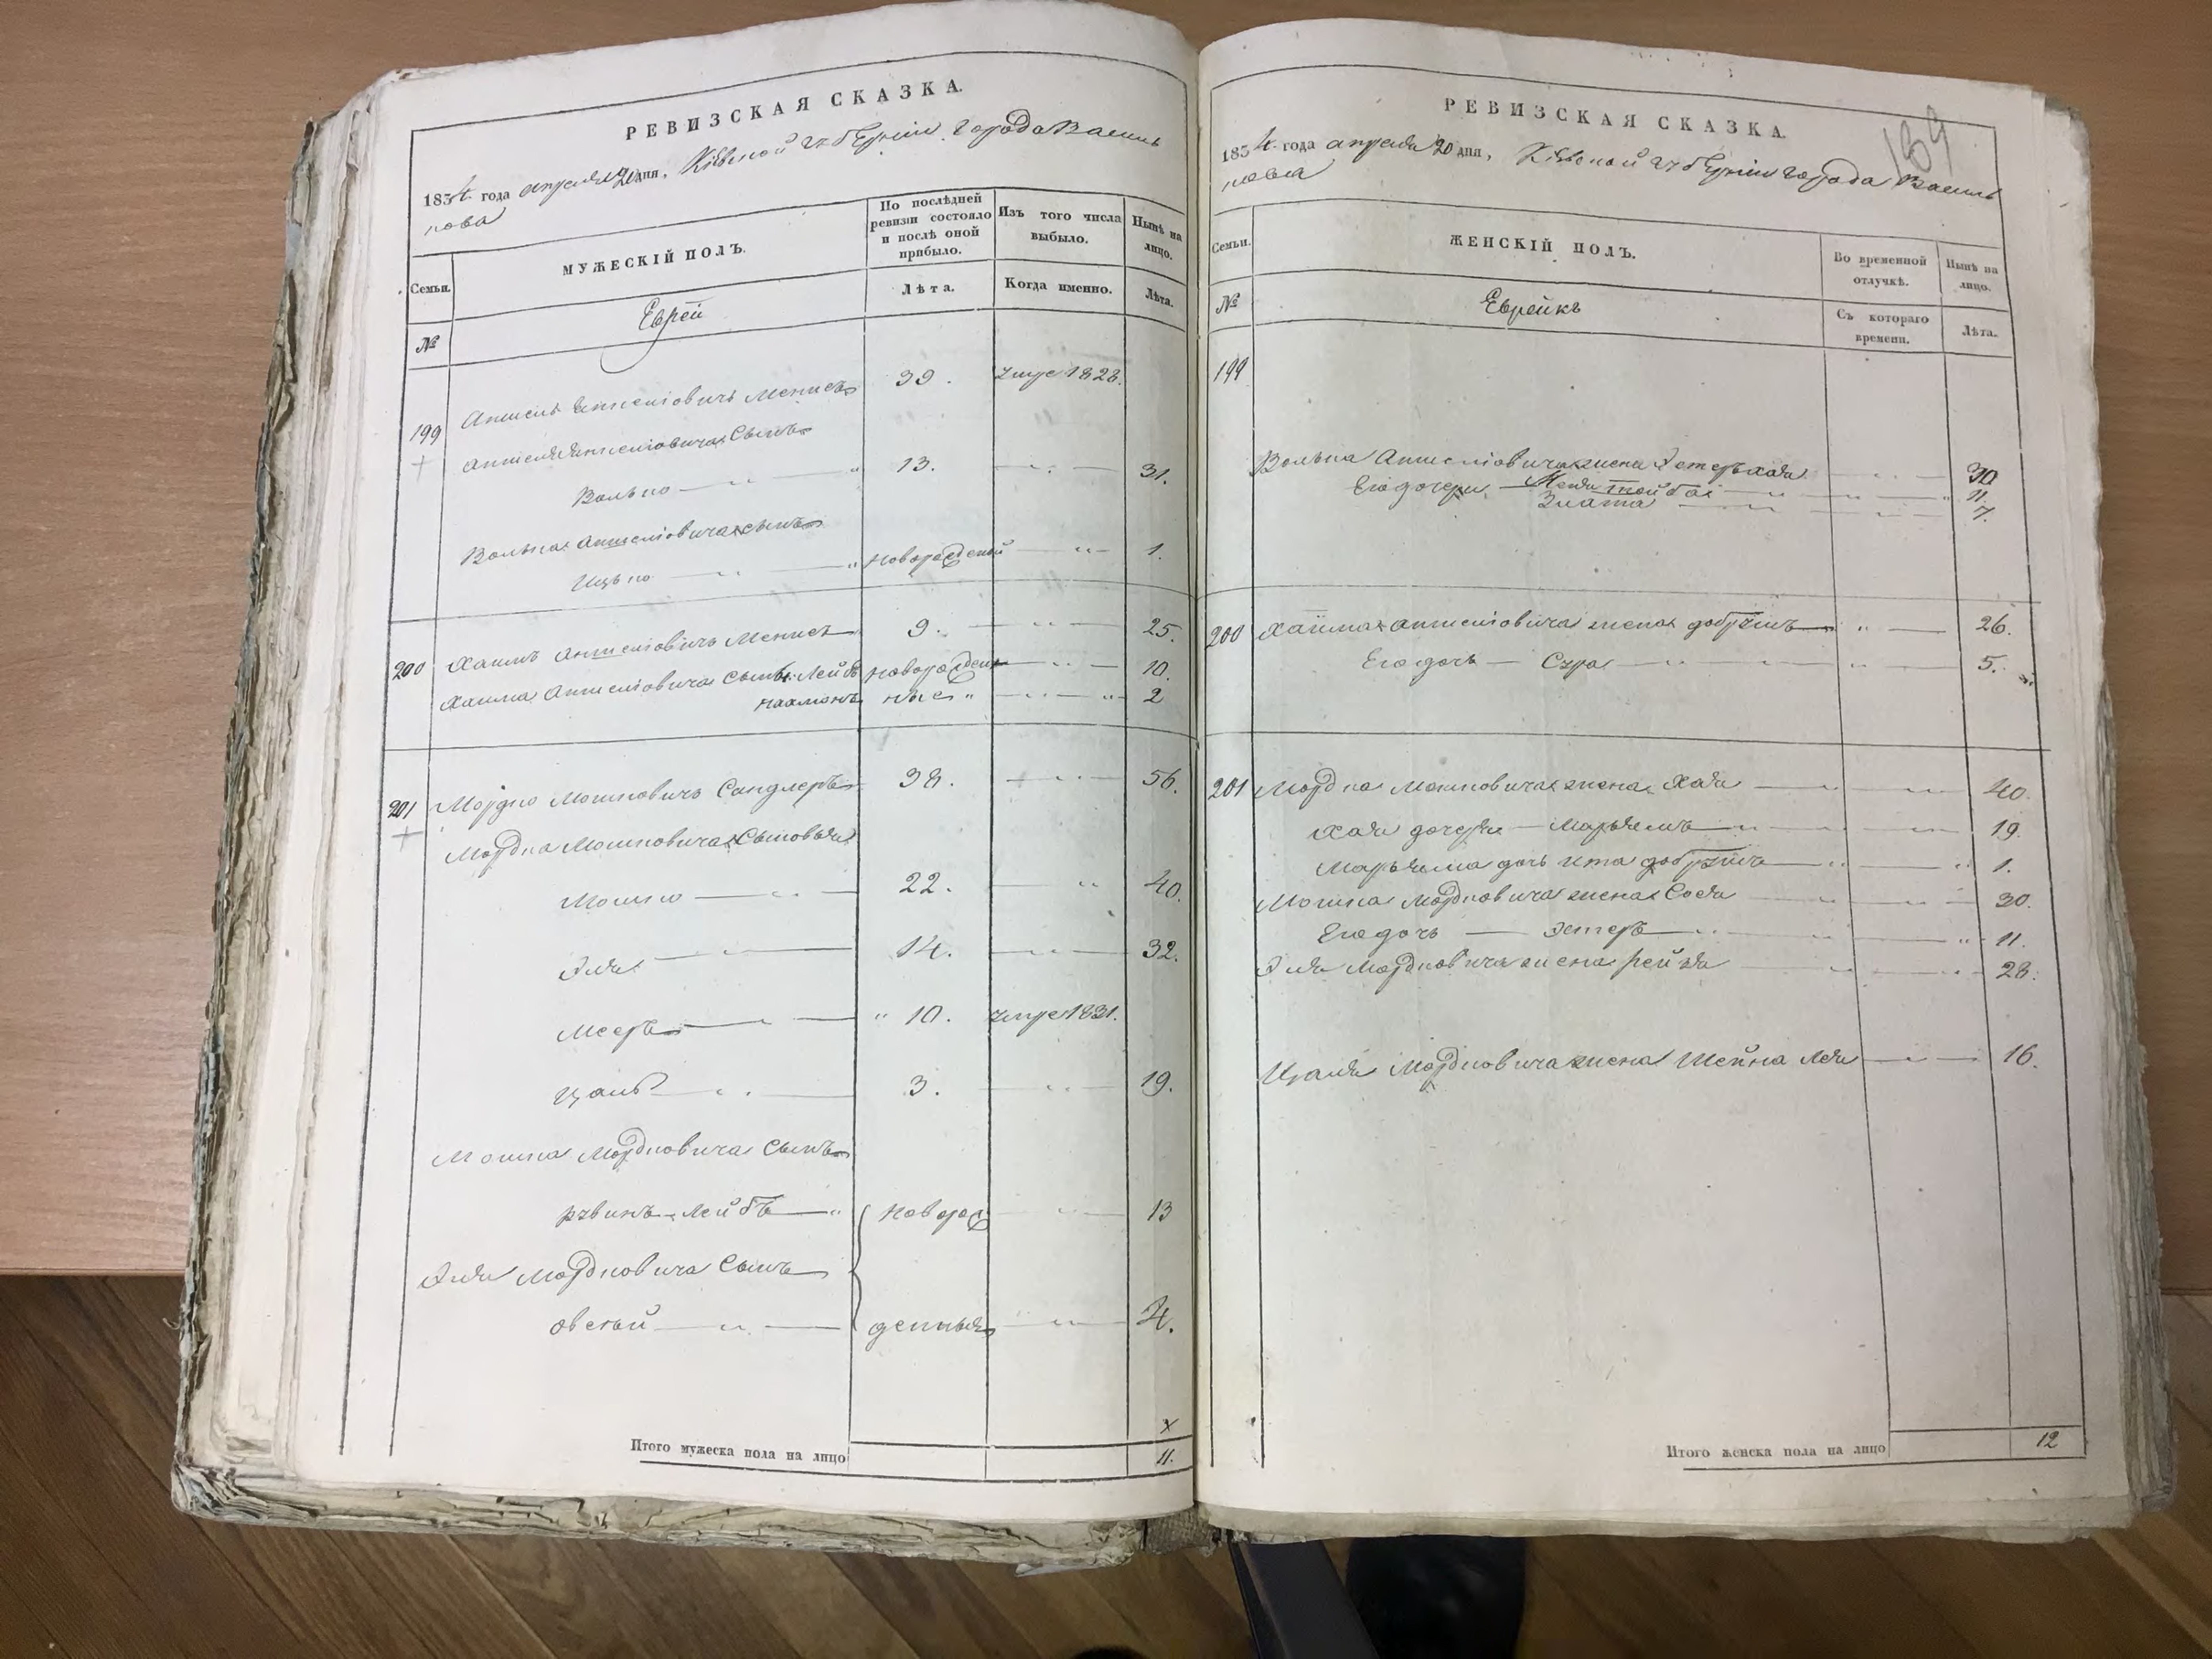 РЕВИЗСКАЯ СКАЗКА.
1854 года апреля 20 дня, Кіевской Губерніи города Василь
кова
Семьи.
МУЖЕСКІЙ ПОЛЪ.
По послѣдней ревизіи состояло и послѣ оной прибыло.
Изъ того числа выбыло.
Нынѣ на лицо.
№
Еврей
Лѣта.
Когда именно.
Лѣта.
199 Аншель Менисъ 39. умре 1828.
Сынъ
Волько 13. 31.
Волька Аншеліовича сынъ
Ицько новорожденый 1.
200 Хаимъ Аншеліовичъ Менисъ 9. 25.
Хаима Аншеліовича сыны Лейбъ новорожден 10.
Нахманъ ные 2
201 Мордко Мошковичъ Сандлеръ 38. 56.
Мордка Мошковича Сыновья
Мошко 22. 40.
Эля 14. 32.
Мееръ 10. умре 1831.
Цаль 3. 19.
Мошка Мордковича Сынъ
Рувинъ Лейбъ новорож 13
Эля Мордковича Сынъ
Овсей денные 4.
Итого мужеска пола на лицо 11.
РЕВИЗСКАЯ СКАЗКА.
189
1854 года апреля 20 дня, Кіевской Губерніи города Василь
кова
Семьи.
ЖЕНСКІЙ ПОЛЪ.
Во временной отлучкѣ.
Нынѣ на лицо.
№
Еврейкъ
Съ котораго времени.
Лѣта.
199
Волька Аншеліовича жена Эстеръ Хая 30
Его дочери 11.
Злата 7.
200 Хаима Аншеліовича жена Добрушъ 26.
Его дочь Сура 5.
201 Мордка Мошковича жена Хая 40.
Хаи дочери Марьямъ 19.
Марьяма дочь Ита Добрушъ 1.
Мошка Мордковича жена Сося 30.
Его дочь Эстеръ 11.
Эля Мордковича жена Рейзя 28.
Цаля Мордковича жена Шейна Лея 16.
Итого женска пола на лицо 12